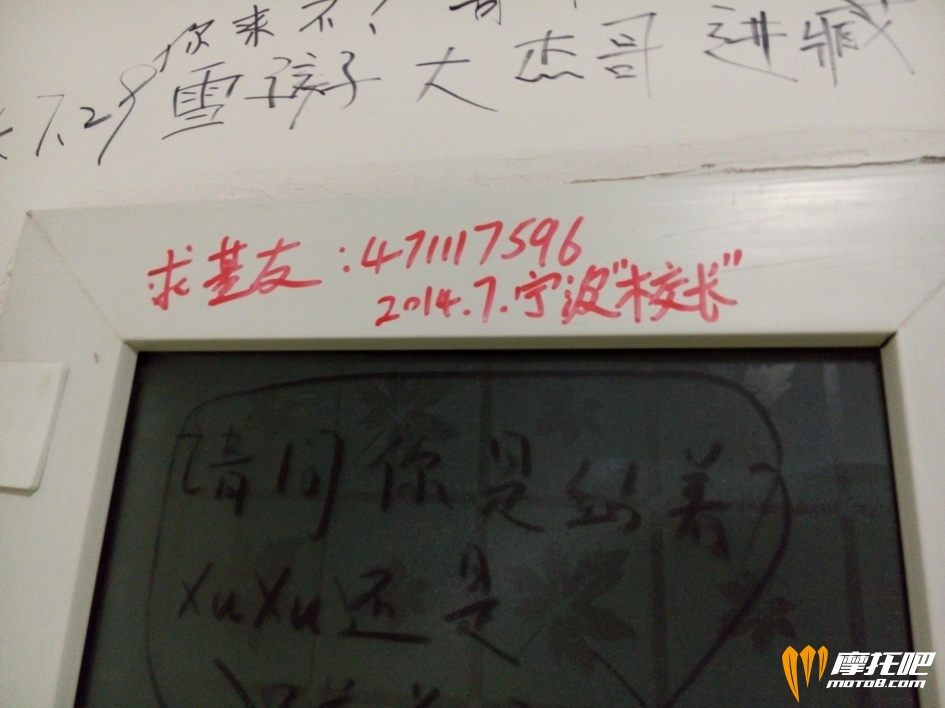 你来不?
7.29 雪孩子大杰哥进藏
求基友:471117596
2014.7.宁波"校长"
请问你是站着
xuxu还是
摩托吧
moto8.com